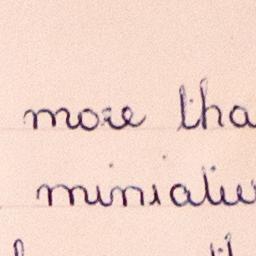 more tha
miniatu